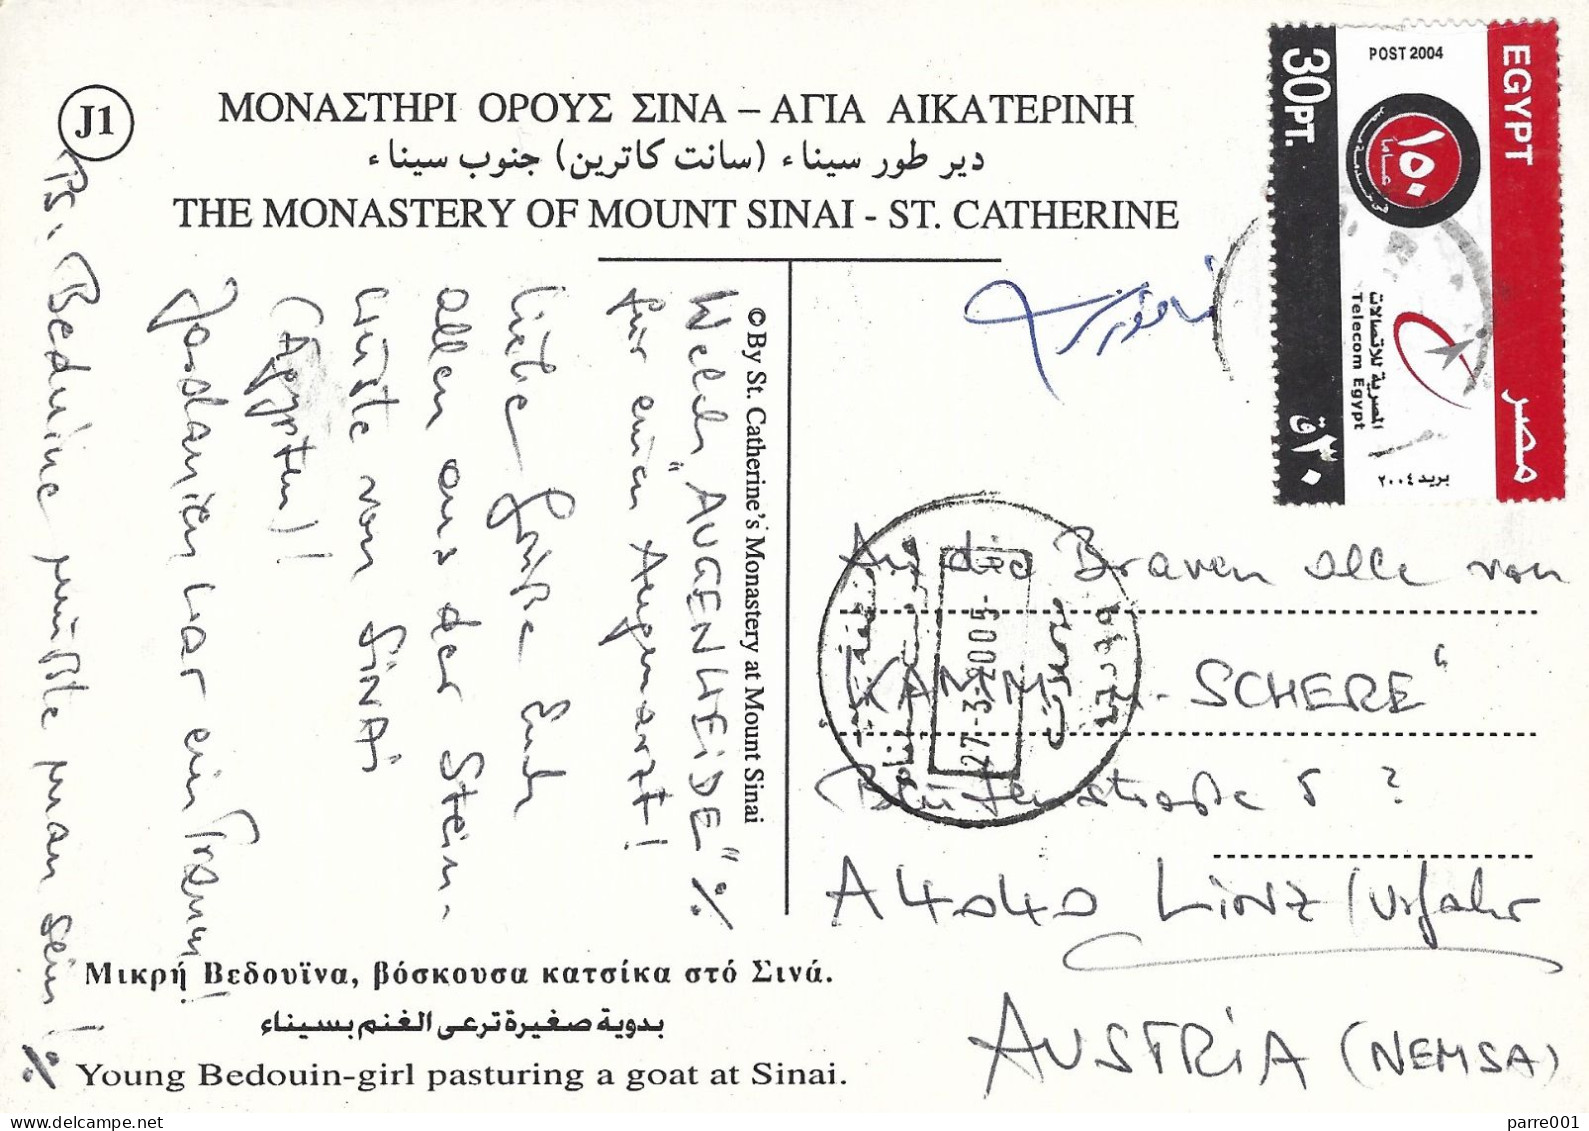 J1
ΜΟΝΑΣΤΗΡΙ ΟΡΟΥΣ ΣΙΝΑ – ΑΓΙΑ ΑΙΚΑΤΕΡΙΝΗ
دير طور سيناء (سانت كاترين) جنوب سيناء
THE MONASTERY OF MOUNT SINAI - ST. CATHERINE
©By St. Catherine's Monastery at Mount Sinai
Welch "AUGENWEIDE" %
für einen Augenarzt!
Liebe Grüße Euch
allen aus der Stein-
wüste von SiNAi
(Ägypten)!
Jordanien war ein Traum!
PS. Beduine müßte man sein!
%
Μικρή Βεδουΐνα, βόσκουσα κατσίκα στό Σινά.
بدوية صغيرة ترعى الغنم بسيناء
Young Bedouin-girl pasturing a goat at Sinai.
EGYPT
مصر
POST 2004
١٥٠
عاما
المصرية للاتصالات
Telecom Egypt
بريد ٢٠٠٤
30PT.
٣٠ ق
27-3-2005-
An die Braven alle von
SCHERE"
Blütenstraße 5 ?
A 4040 LiNZ / Urfahr
AUSTRiA (NEMSA)
parre001